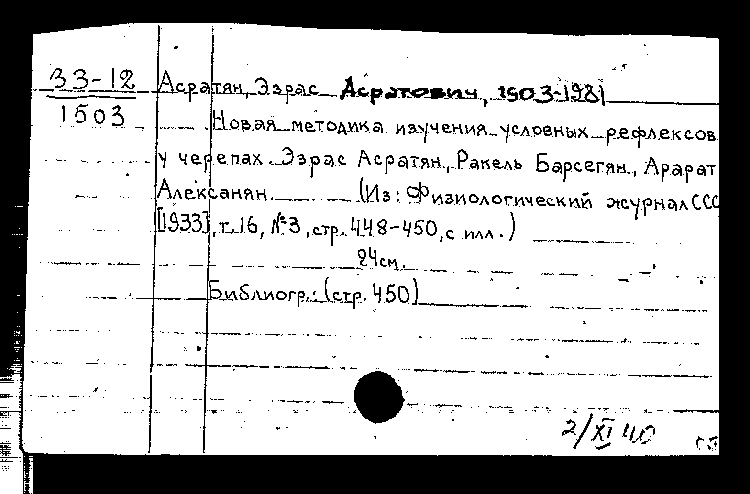 33-12
1503
Асратян, Эзрас Асратович, 1903-1981
Новая методика изучения условных рефлексов
у черепах. Эзрас Асратян, Ракель Барсегян, Арарат
Алексанян (Из: Физиологический журнал ССС
[1933], т. 16, №3, стр. 448-450, с илл.)
24см.
Библиогр.: (стр. 450)
2/XI 40